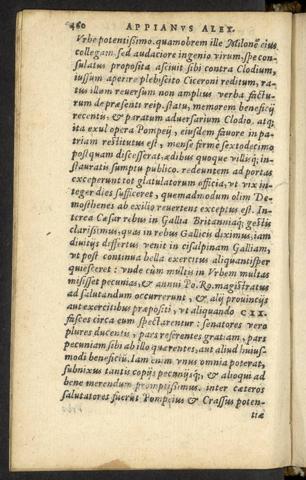 460 APPIANVS ALEX.
Vrbe potentissimo. quamobrem ille Milonē eius
collegam, sed audaciore ingenio virum, spe con-
sulatus proposita asciuit sibi contra Clodium,
iussum aperire plebiscito Ciceroni reditum, ra-
tus illum reuersum non amplius verba facturū
rum de præsenti reip. statu, memorem beneficij
recentis & paratum aduersarium Clodio. atq;
ita exul opera Pompeij, eiusdem fauore in pa-
triam restitutus est, mense ferme sextodecimo
postquam discesserat, ædibus quoque villisq; in-
stauratis sumptu publico. redeuntem ad portas
exceperunt tot gratulatorum officia, vt vix in-
teger dies sufficeret, quemadmodum olim De-
mosthenes ab exilio reuertens exceptus est. In-
terea Cæsar rebus in Gallia Britanniaq; gestis
clarissimus, quas in rebus Gallicis diximus, iam
diuitijs differtus venit in cisalpinam Galliam,
vt post continua bella exercitus aliquantisper
quiesceret: vnde cùm multis in Vrbem multas
misisset pecunias, & annui Po. Ro. magistratus
ad salutandum occurrerunt, & alij prouincijs
aut exercitibus præpositi, vt aliquando CXX.
fasces circa eum spectarentur: senatores vero
plures ducenti, pars referentes gratiam, pars
pecuniam sibi ab illo quærentes, aut aliud huius-
modi beneficiū. Iam enim vnus omnia poterat,
subnixus tantis copijs pecunijsq; & alioqui ad
bene merendum promptissimus. inter cæteros
salutatores fuerūt Pompeius & Crassus poten-
tiæ